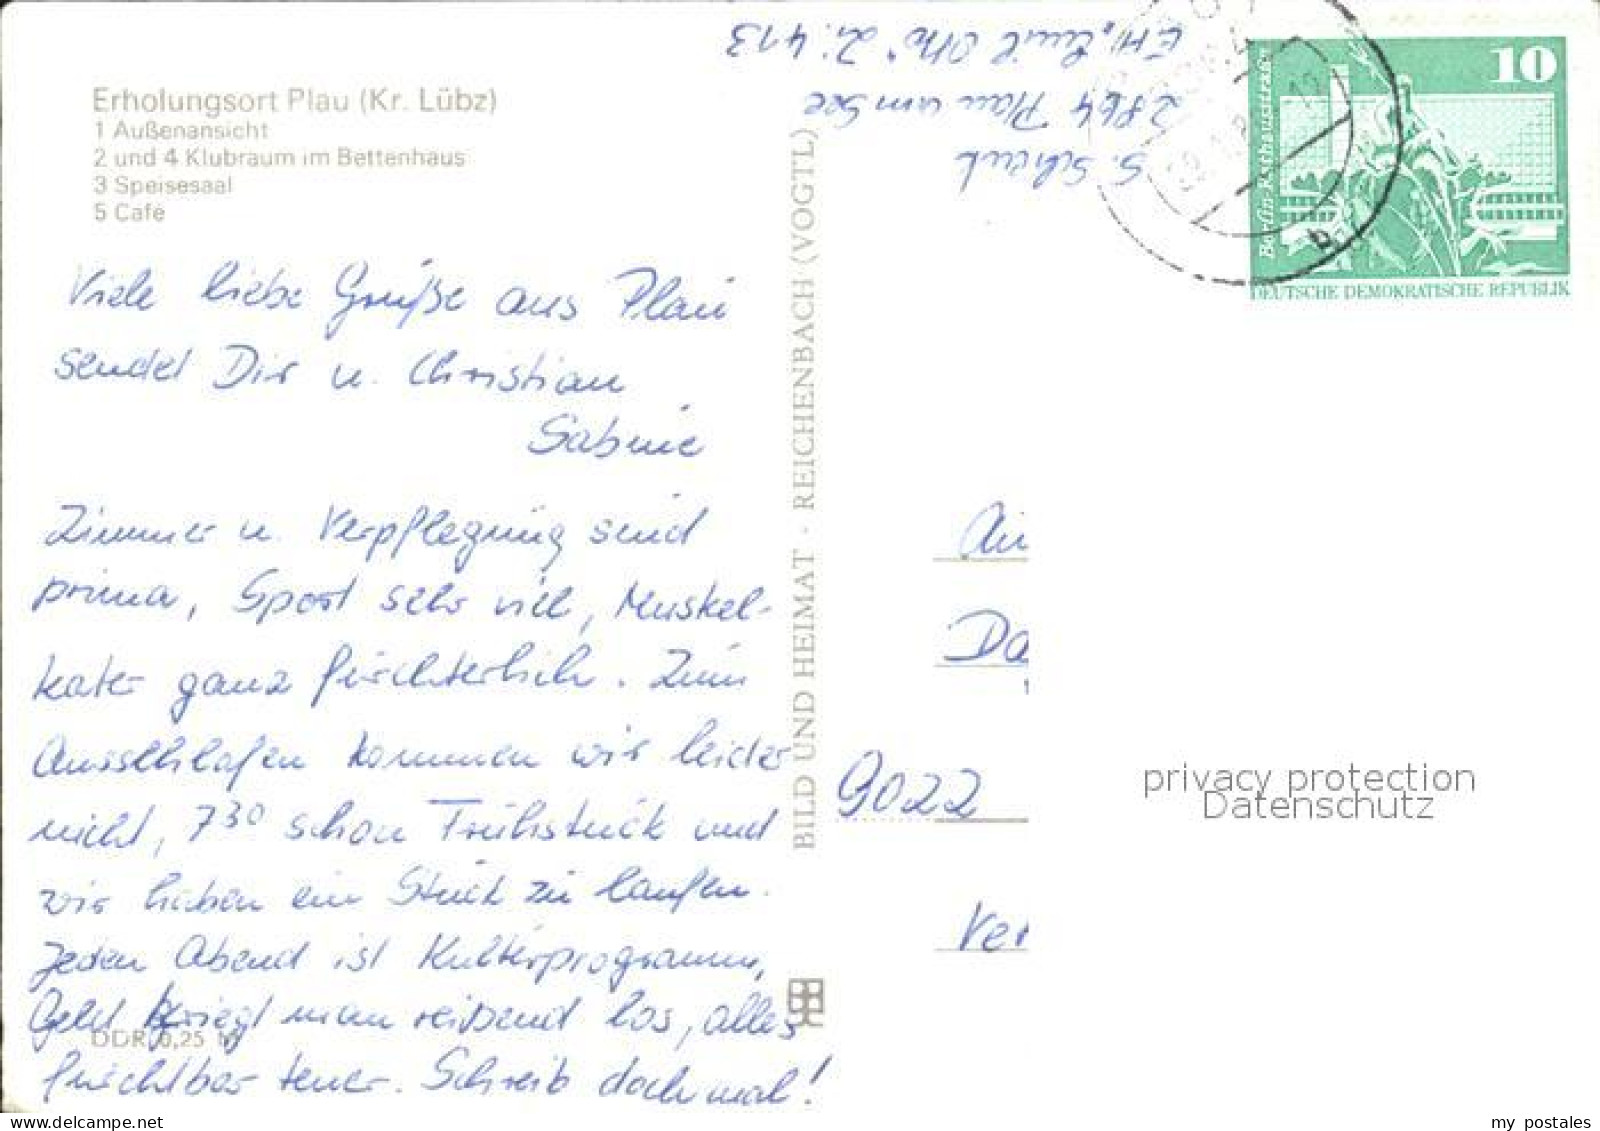 Erholungsort Plau (Kr. Lübz)
1 Außenansicht
2 und 4 Klubraum im Bettenhaus
3 Speisesaal
5 Café
Viele liebe Grüße aus Plau
sendet Dir u. Christian
Sabine
Zimmer u. Verpflegung sind
prima, Sport sehr viel, Muskel-
kater ganz fürchterlich. Zum
Ausschlafen kommen wir leider
nicht, 7³⁰ schon Frühstück und
wir haben ein Stück zu laufen.
Jeden Abend ist Kulturprogramm,
Geld kriegt man reißend los, alles
furchtbar teuer. Schreib doch mal!
DDR 0,25 M
BILD UND HEIMAT · REICHENBACH (VOGTL)
S. Schenk
2864 Plau am See
EH "Emil Otto" Zi. 413
10
Berlin-Rathausstraße
DEUTSCHE DEMOKRATISCHE REPUBLIK
b
An
Da
9022
Ver
privacy protection
Datenschutz
my postales